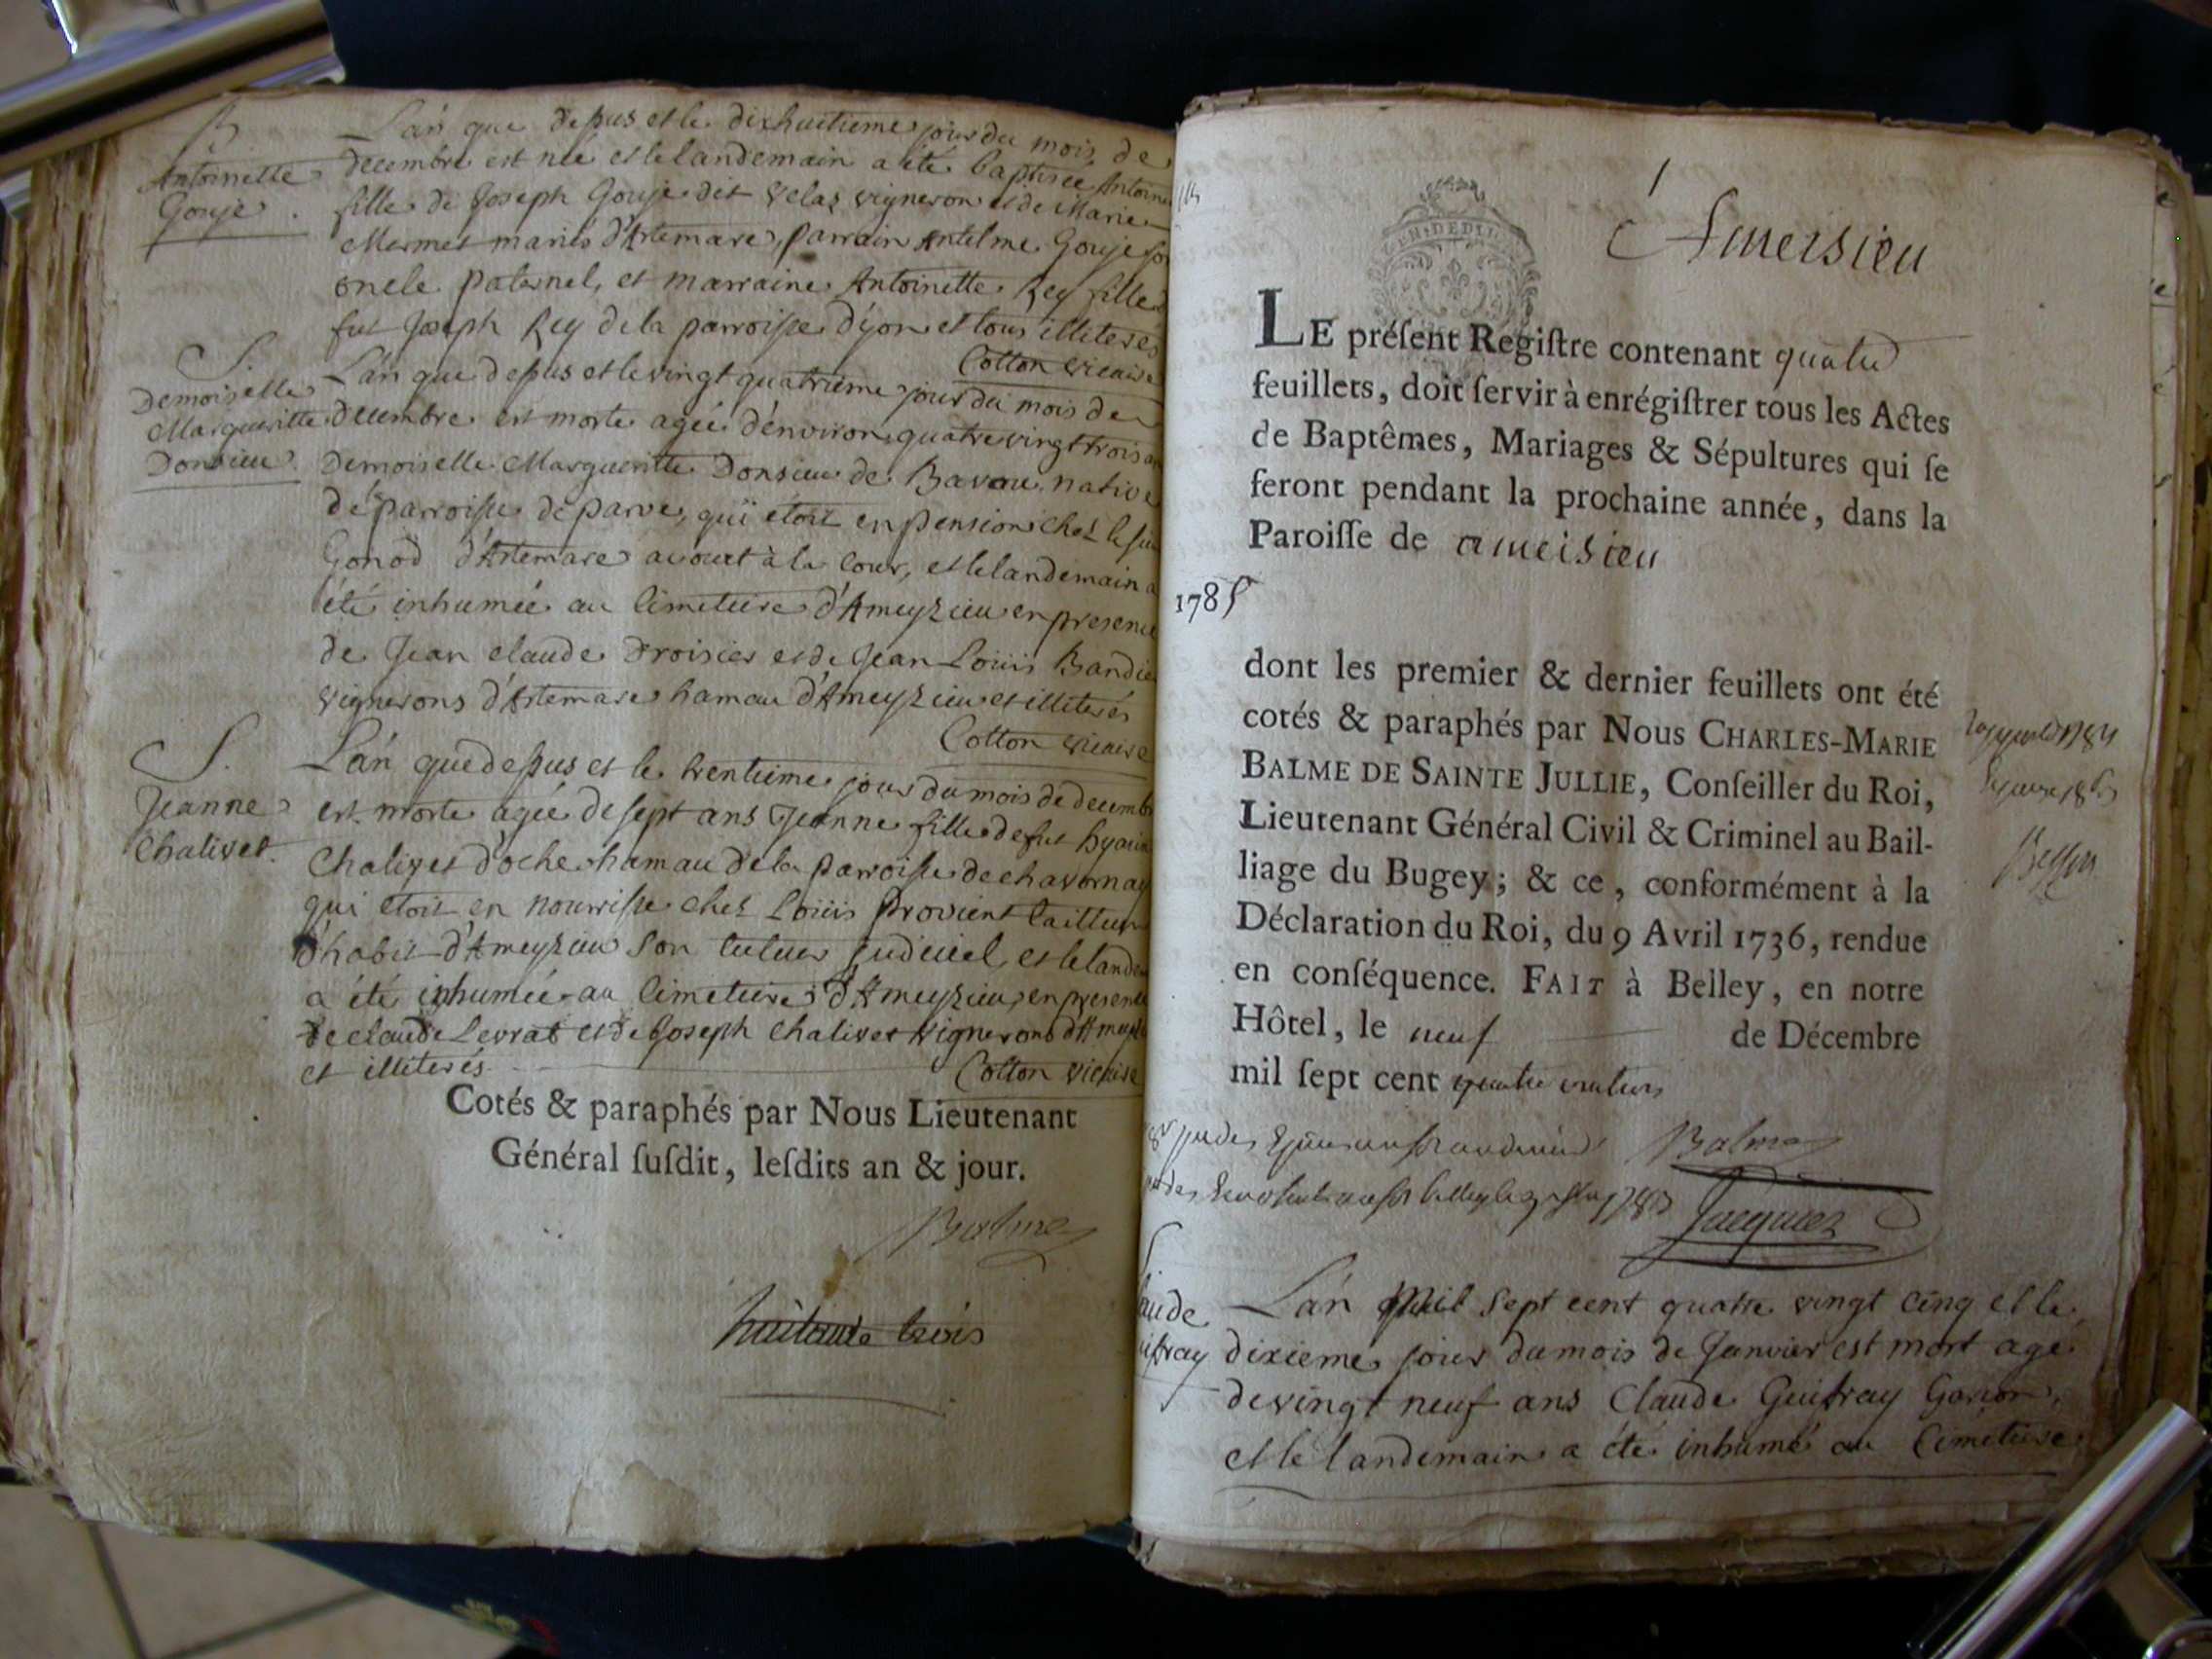 B
Antoinette
Gouje.
L'an que dessus et le dixhuitieme jour du mois de
decembre est née et le landemain a été baptisée Antoine
fille de Joseph Gouje dit Velaz vigneron et de Marie
Mermet mariés d'Artemare, parrain Antelme Gouje son
oncle paternel, et marraine Antoinette Rey fille
fut Joseph Rey de la parroisse d'yon et tous illiterés
Cotton vicaire
S.
Demoiselle
Margueritte
Donsieu.
L'an que dessus et le vingt quatrieme jour du mois de
decembre est morte agée d'environ quatre vingt trois an
Demoiselle Margueritte Donsieu de Bavou native
de la parroisse de parve, qui étoit en pension chez le sieur
Gonod d'Artemare avocat à la Cour, et le landemain a
été inhumée au Cimetiere d'Ameyzieu en presence
de Jean claude Droisier et de Jean Loüis Bandier
vignerons d'Artemare hamau d'Ameyzieu et illiterés
Cotton vicaire
S.
Jeanne
Chalivet.
L'an que dessus et le trentieme jour du mois de decembr
est morte agée de sept ans Jeanne fille de fut hyacin
Chalivet d'oche hamau de la parroisse de chavornay
qui etoit en nourrisse chez Loüis Provient tailleur
d'habit d'Ameyzieu son tuteur judiciel, et le lande
a été inhumée au Cimetiere d'Ameyzieu, en presence
de claude Levrat et de Joseph Chalivet vignerons d'Ameyz
et illiterés
Cotton vicaire
Cotés & paraphés par Nous Lieutenant
Général ſuſdit, leſdits an & jour.
Balme
huitante trois
1
Ameisieu
GEN. DE DIJON
LE préſent Regiſtre contenant quatre
feuillets, doit ſervir à enrégiſtrer tous les Actes
de Baptêmes, Mariages & Sépultures qui ſe
feront pendant la prochaine année, dans la
Paroiſſe de ameisieu
1785
dont les premier & dernier feuillets ont été
cotés & paraphés par Nous CHARLES-MARIE
BALME DE SAINTE JULLIE, Conſeiller du Roi,
Lieutenant Général Civil & Criminel au Bail-
liage du Bugey; & ce, conformément à la
Déclaration du Roi, du 9 Avril 1736, rendue
en conſéquence. FAIT à Belley, en notre
Hôtel, le neuf de Décembre
mil ſept cent quatre
Balme
Jacquier
L'an Mil sept cent quatre vingt cinq et le
dixieme jour du mois de Janvier est mort agé
de vingt neuf ans Claude Guifray Garçon,
et le landemain a été inhumé au Cimetiere